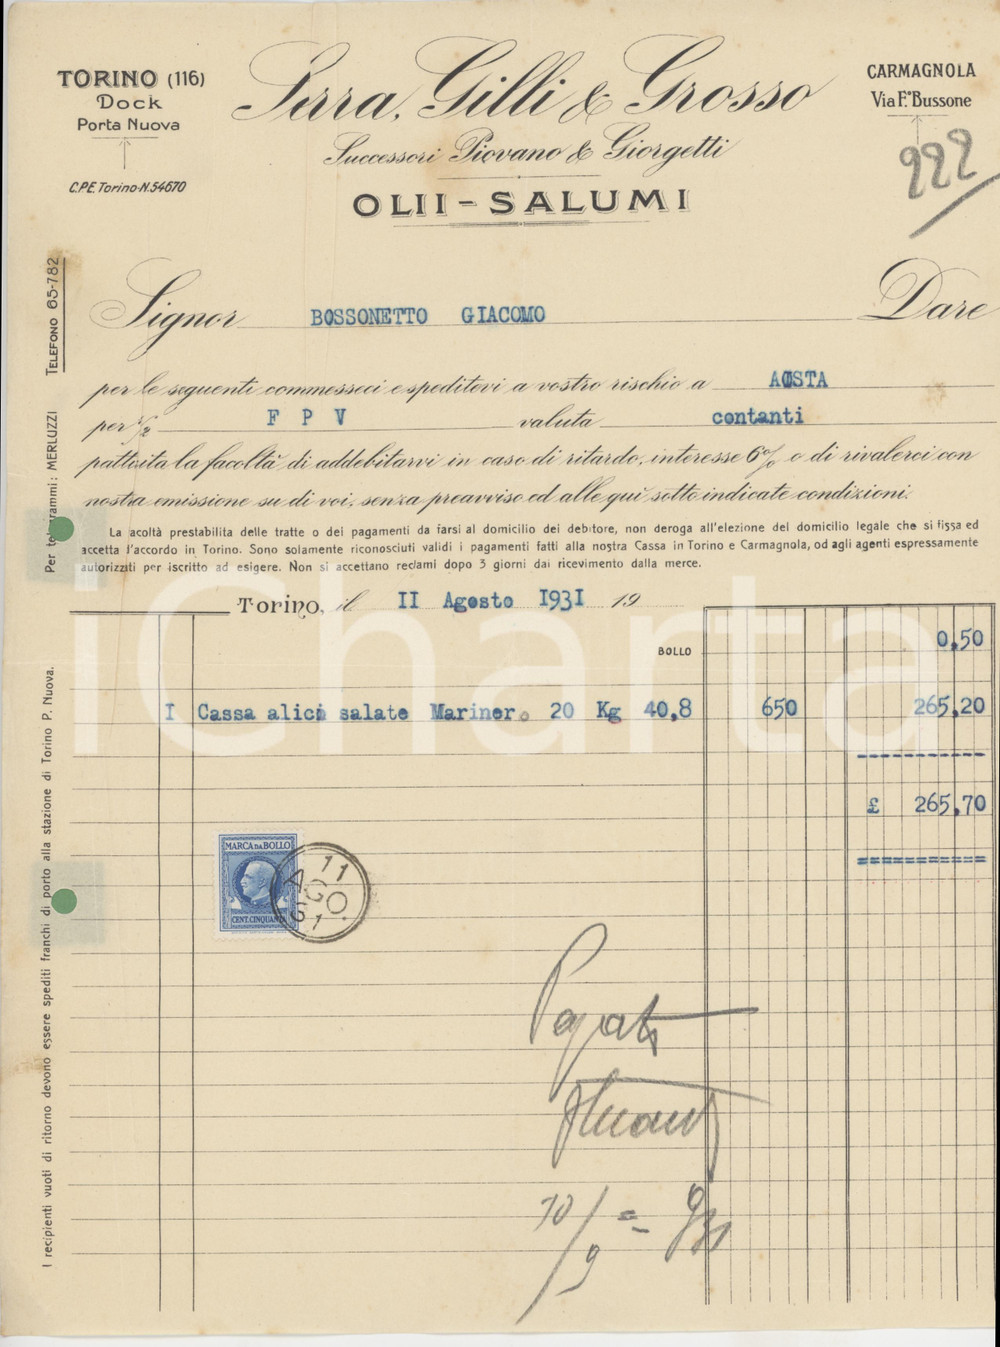 TORINO (116)
Dock
Porta Nuova
C.P.E. Torino-N. 54670
Serra, Gilli & Grosso
Successori Piovano & Giorgetti
OLII - SALUMI
CARMAGNOLA
Via F.co Bussone
222
TELEFONO 65-782
Per telegrammi: MERLUZZI
Signor BOSSONETTO GIACOMO Dare
per le seguenti commesseci e speditevi a vostro rischio a AOSTA
per F P V valuta contanti
pattuita la facoltà di addebitarvi in caso di ritardo, interesse 6% o di rivalerci con
nostra emissione su di voi, senza preavviso ed alle qui sotto indicate condizioni.
La acoltà prestabilita delle tratte o dei pagamenti da farsi al domicilio dei debitore, non deroga all'elezione del domicilio legale che si fissa ed
accetta l'accordo in Torino. Sono solamente riconosciuti validi i pagamenti fatti alla nostra Cassa in Torino e Carmagnola, od agli agenti espressamente
autorizziti per iscritto ad esigere. Non si accettano reclami dopo 3 giorni dal ricevimento dalla merce.
Torino, il II Agosto I93I 19
BOLLO 0,50
I Cassa alici salate Marinero 20 Kg 40,8 650 265,20
£ 265,70
MARCA DA BOLLO
CENT. CINQUANTA
11
AGO.
I recipienti vuoti di ritorno devono essere spediti franchi di porto alla stazione di Torino P. Nuova.
Pagato
10/9 = 931
iCharta